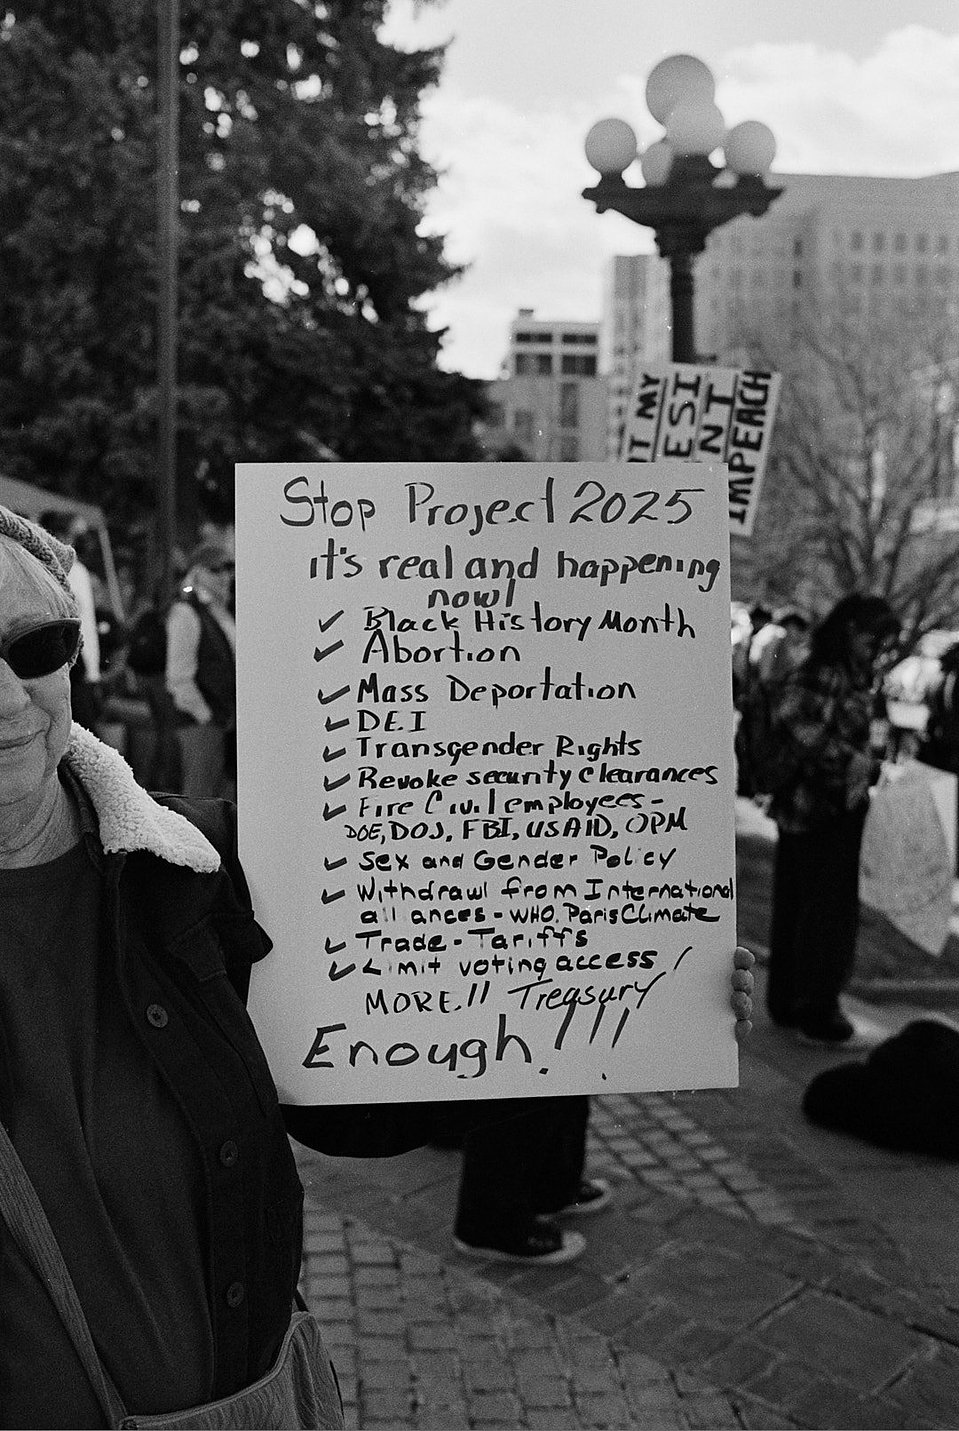 OT MY
ESI
NT
IMPEACH
Stop Project 2025
it's real and happening
now!
✓ Black History Month
✓ Abortion
✓ Mass Deportation
✓ DEI
✓ Transgender Rights
✓ Revoke security clearances
✓ Fire Civil employees -
DOE, DOJ, FBI, USAID, OPM
✓ Sex and Gender Policy
✓ Withdrawl from International
alliances - WHO, Paris Climate
✓ Trade - Tariffs
✓ Limit voting access!
MORE!! Treasury
Enough!!!